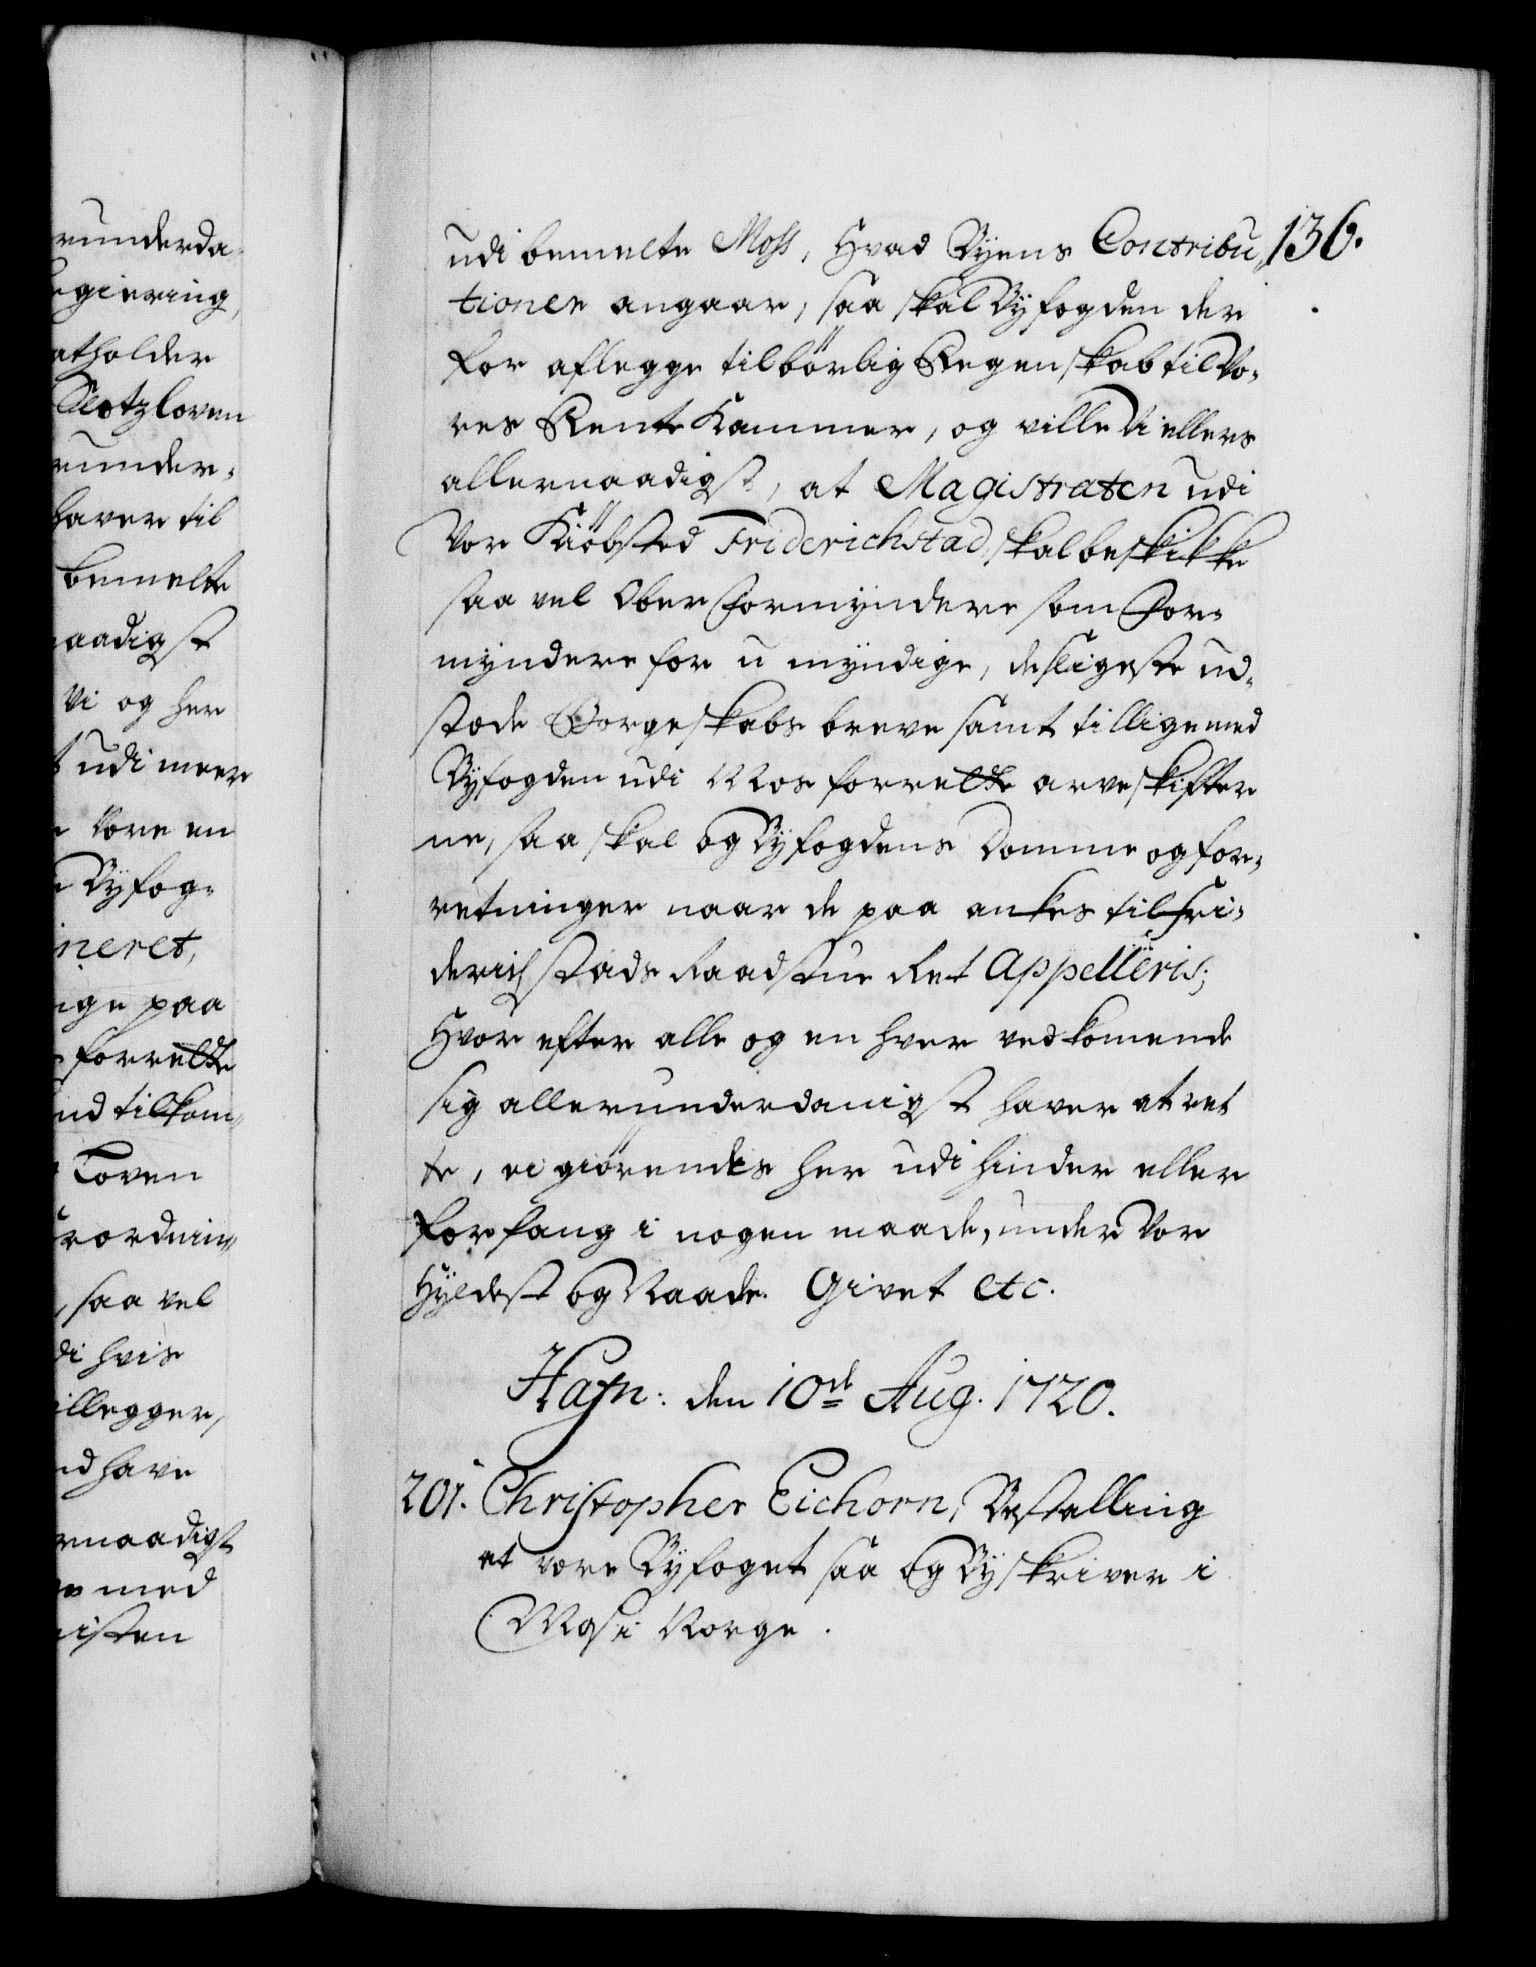 runderda-
egiering,
atholder
Slotzloven
runder-
haver til
bemelte
naadigst
Vi og her
t udi meere
e Vore en
n Byfog-
ineret,
ige paa
forrette
nd tilkom-
Loven
rordnin-
, saa vel
di hvis
illegger,
nd have
rnaadigst
med
isten
136.
udi bemelte Moss, Hvad Byens Contribu-
tioner angaar, saa skal Byfogden der
for aflegge tilbørlig Regenskab til Vo-
res Rente Kammer, og ville Vi ellers
allernaadigst, at Magistraten udi
Vor Kiøbsted Friderichstad, skal beskikke
saa vel Ober Formyndere som For-
myndere for u myndige, desligeste ud-
stæde Borgerskabs breve samt tillige med
Byfogden udi Mos forrette arveskifter
ne, saa skal og Byfogdens Domme og for-
retninger naar de paa ankes til Fri-
derichstads Raadstue Ret Appelleris;
Hvor efter alle og en hver vedkomende
sig allerunderdanigst haver at ret
te, ei giørendes her udi hinder eller
forfang i nogen maade, under Vor
Hyldest og Naade. Givet etc.
Hafn: den 10de Aug. 1720.
201. Christopher Eichorn, Bestalling
at være Byfoget saa og Byskriver i
Mos i Norge.